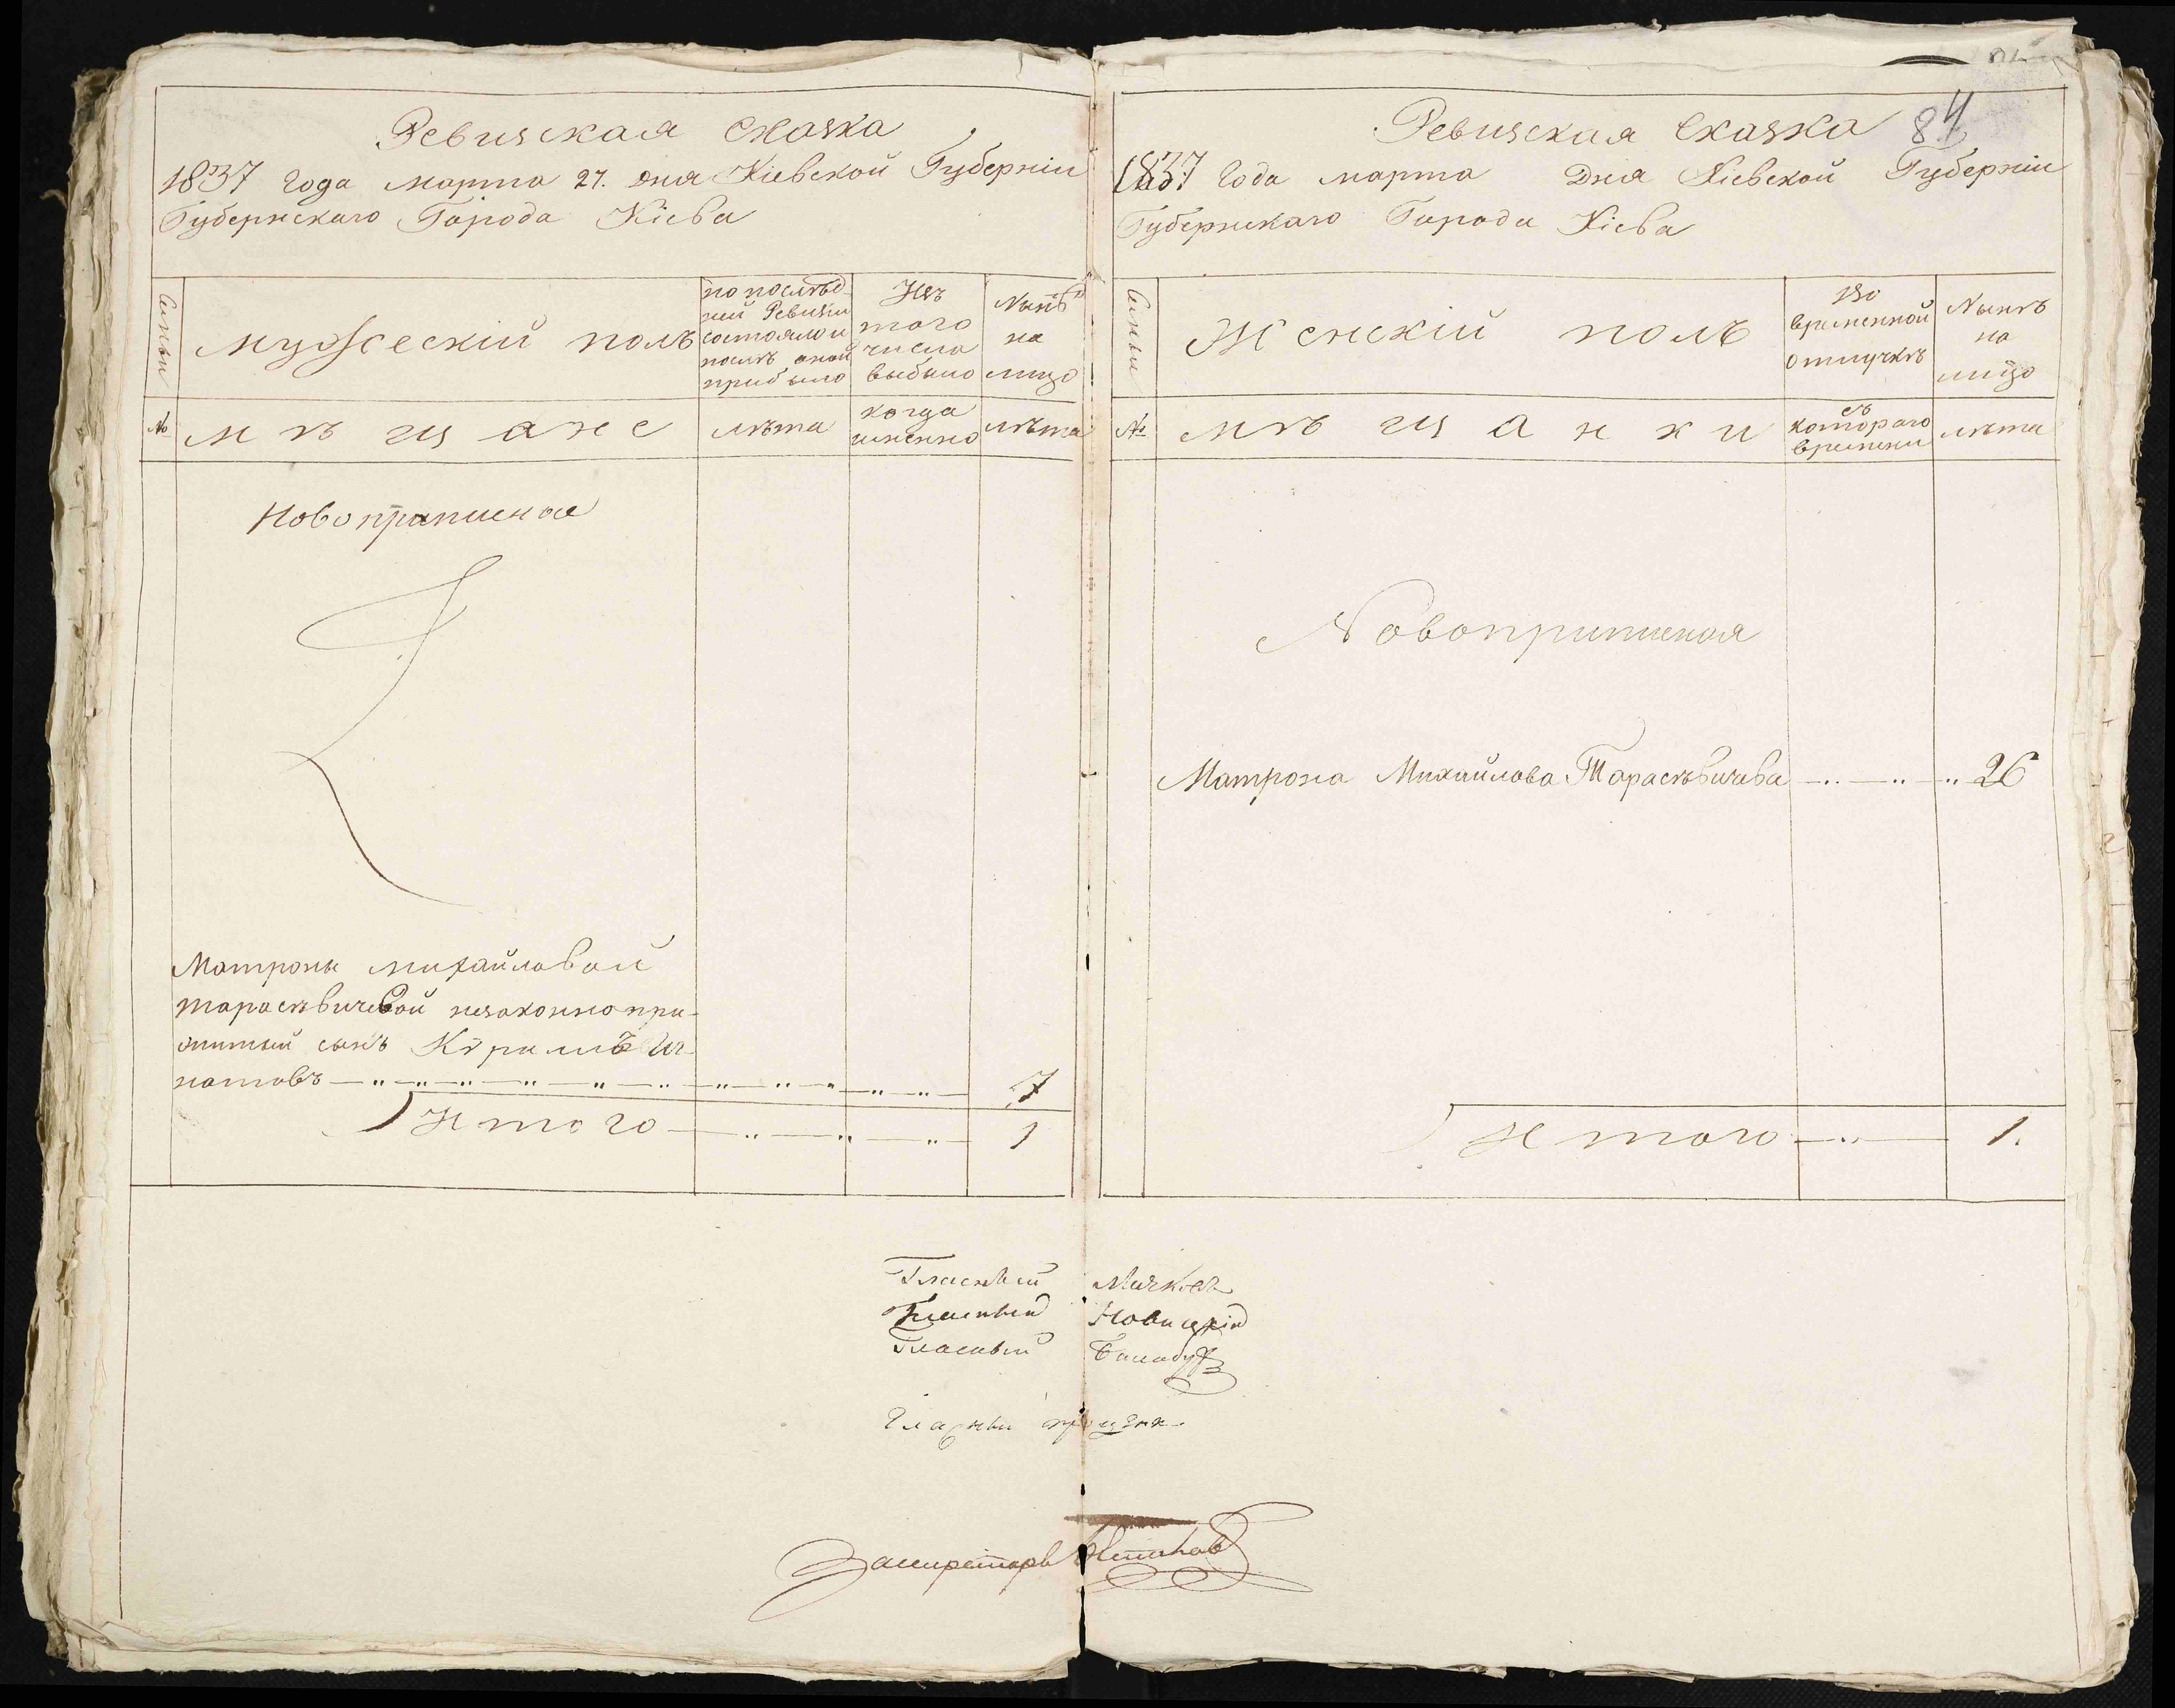 Ревизская Сказка
1837 года марта 27. дня Кіевской Губерніи
Губернскаго Города Кіева
Семьи
мужескій полъ
по послѣд-
ней Ревизіи
состояло и
послѣ оной
прибыло
Изъ
того
числа
выбыло
Нынѣ
на
лицо
№
мѣщане
лѣта
когда
именно
лѣта
Новоприписное
Матроны михайловой
тарасѣвичевой незаконнопри-
житый сынъ Кирилъ Иг-
натовъ 7
Итого 1
84
Ревизская Сказка
1837 Года марта Дня Кіевской Губерніи
Губернскаго Города Кіева
Семьи
Женскій полъ
Во
временной
отлучкѣ
Нынѣ
на
лицо
№
мѣщанки
съ
котораго
времени
лѣта
Новоприписная
Матрона Михайлова Тарасѣвичева 26
Итого 1.
Гласный
Гласный Новицкій
Гласный Балабуха
Гласный